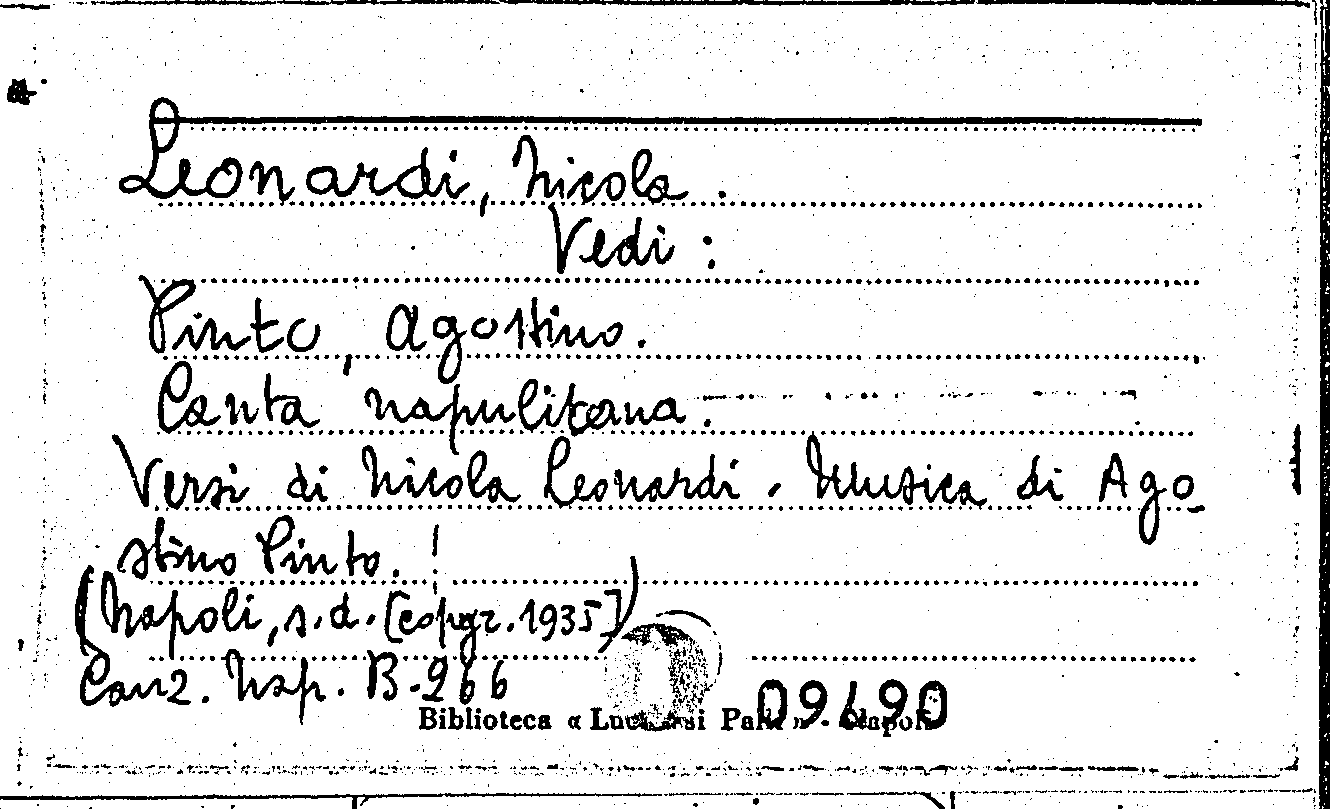 Leonardi, Nicola.
Vedi:
Pinto, Agostino.
Canta napulitana.
Versi di Nicola Leonardi. Musica di Ago-
stino Pinto.
(Napoli, s.d. [copyr. 1935])
Canz. Nap. B. 266
Biblioteca « Lucchesi Palli » - Napoli